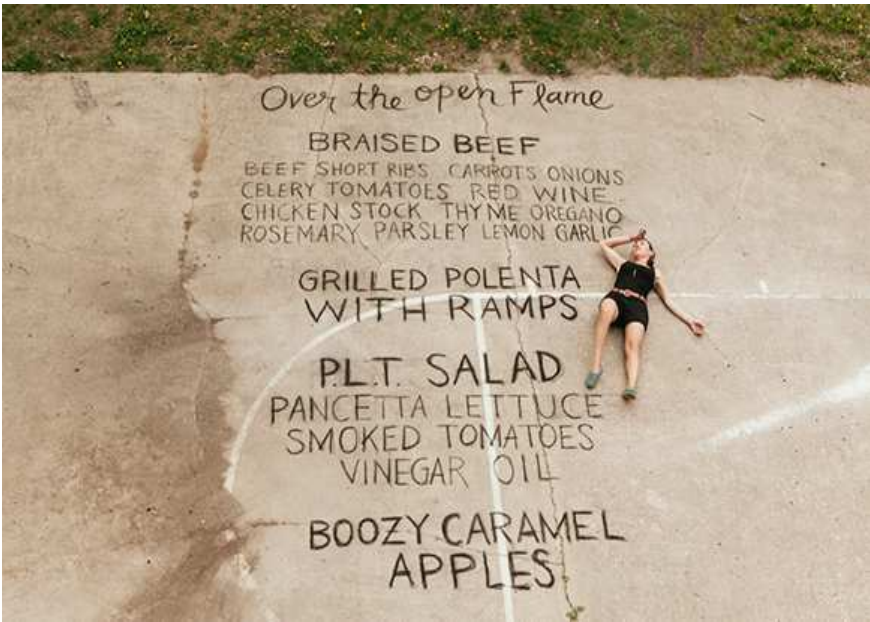 Over the open Flame
BRAISED BEEF
BEEF SHORT RIBS CARROTS ONIONS
CELERY TOMATOES RED WINE
CHICKEN STOCK THYME OREGANO
ROSEMARY PARSLEY LEMON GARLIC
GRILLED POLENTA
WITH RAMPS
P.L.T. SALAD
PANCETTA LETTUCE
SMOKED TOMATOES
VINEGAR OIL
BOOZY CARAMEL
APPLES